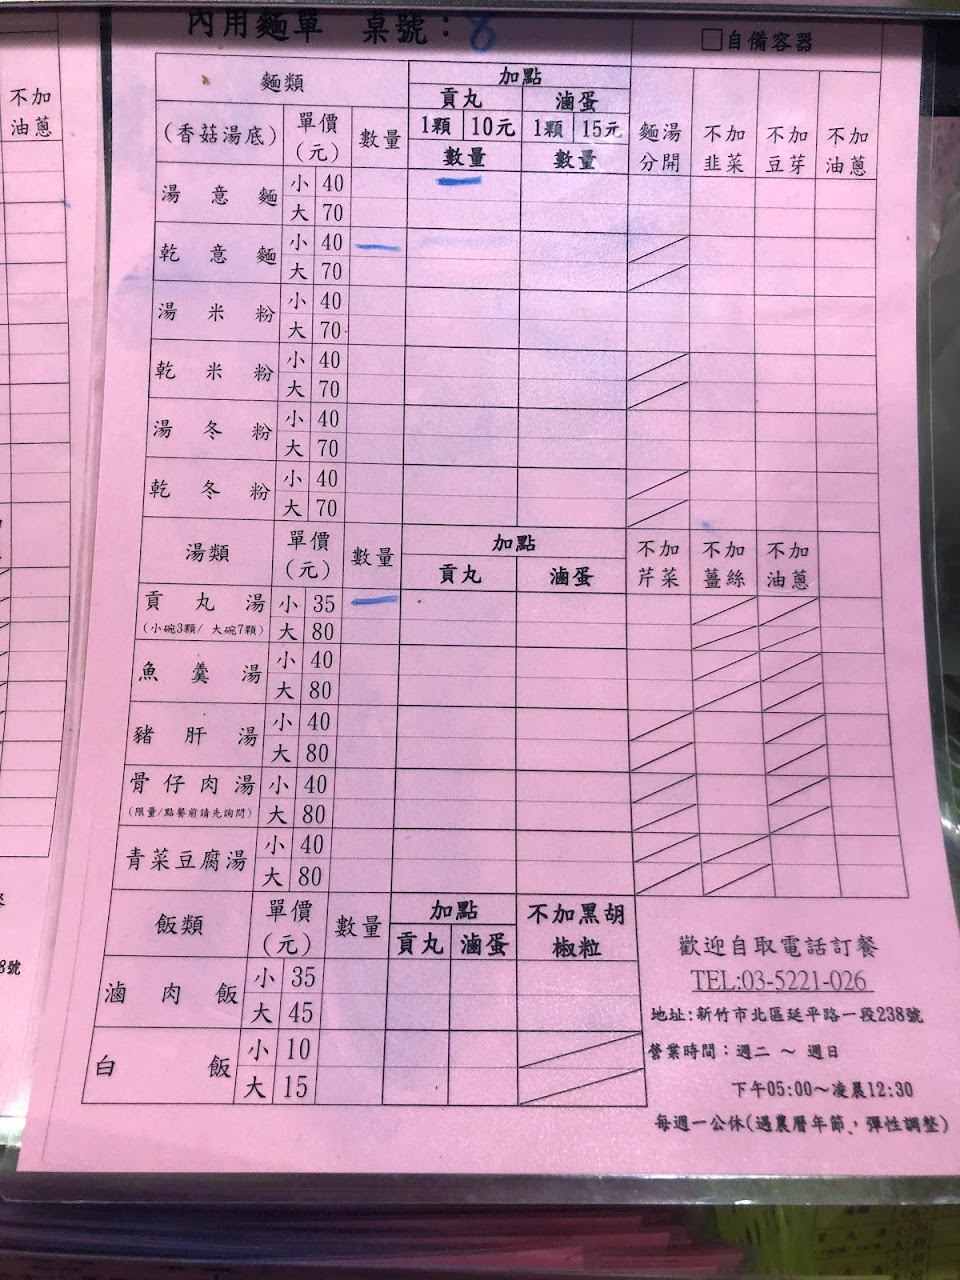 不加
油蔥
8號
內用麵單 桌號：8
□自備容器
麵類 加點
貢丸 滷蛋
(香菇湯底) 單價(元) 數量 1顆 10元 1顆 15元 麵湯分開 不加韭菜 不加豆芽 不加油蔥
數量 數量
湯意麵 小 40
大 70
乾意麵 小 40 一
大 70
湯米粉 小 40
大 70
乾米粉 小 40
大 70
湯冬粉 小 40
大 70
乾冬粉 小 40
大 70
湯類 單價(元) 數量 加點 不加芹菜 不加薑絲 不加油蔥
貢丸 滷蛋
貢丸湯 小 35 一
(小碗3顆/ 大碗7顆) 大 80
魚羹湯 小 40
大 80
豬肝湯 小 40
大 80
骨仔肉湯 小 40
(限量/點餐前請先詢問) 大 80
青菜豆腐湯 小 40
大 80
飯類 單價(元) 數量 加點 不加黑胡椒粒
貢丸 滷蛋
滷肉飯 小 35
大 45
白飯 小 10
大 15
歡迎自取電話訂餐
TEL:03-5221-026
地址:新竹市北區延平路一段238號
營業時間：週二 ～ 週日
下午05:00～凌晨12:30
每週一公休(遇農曆年節，彈性調整)